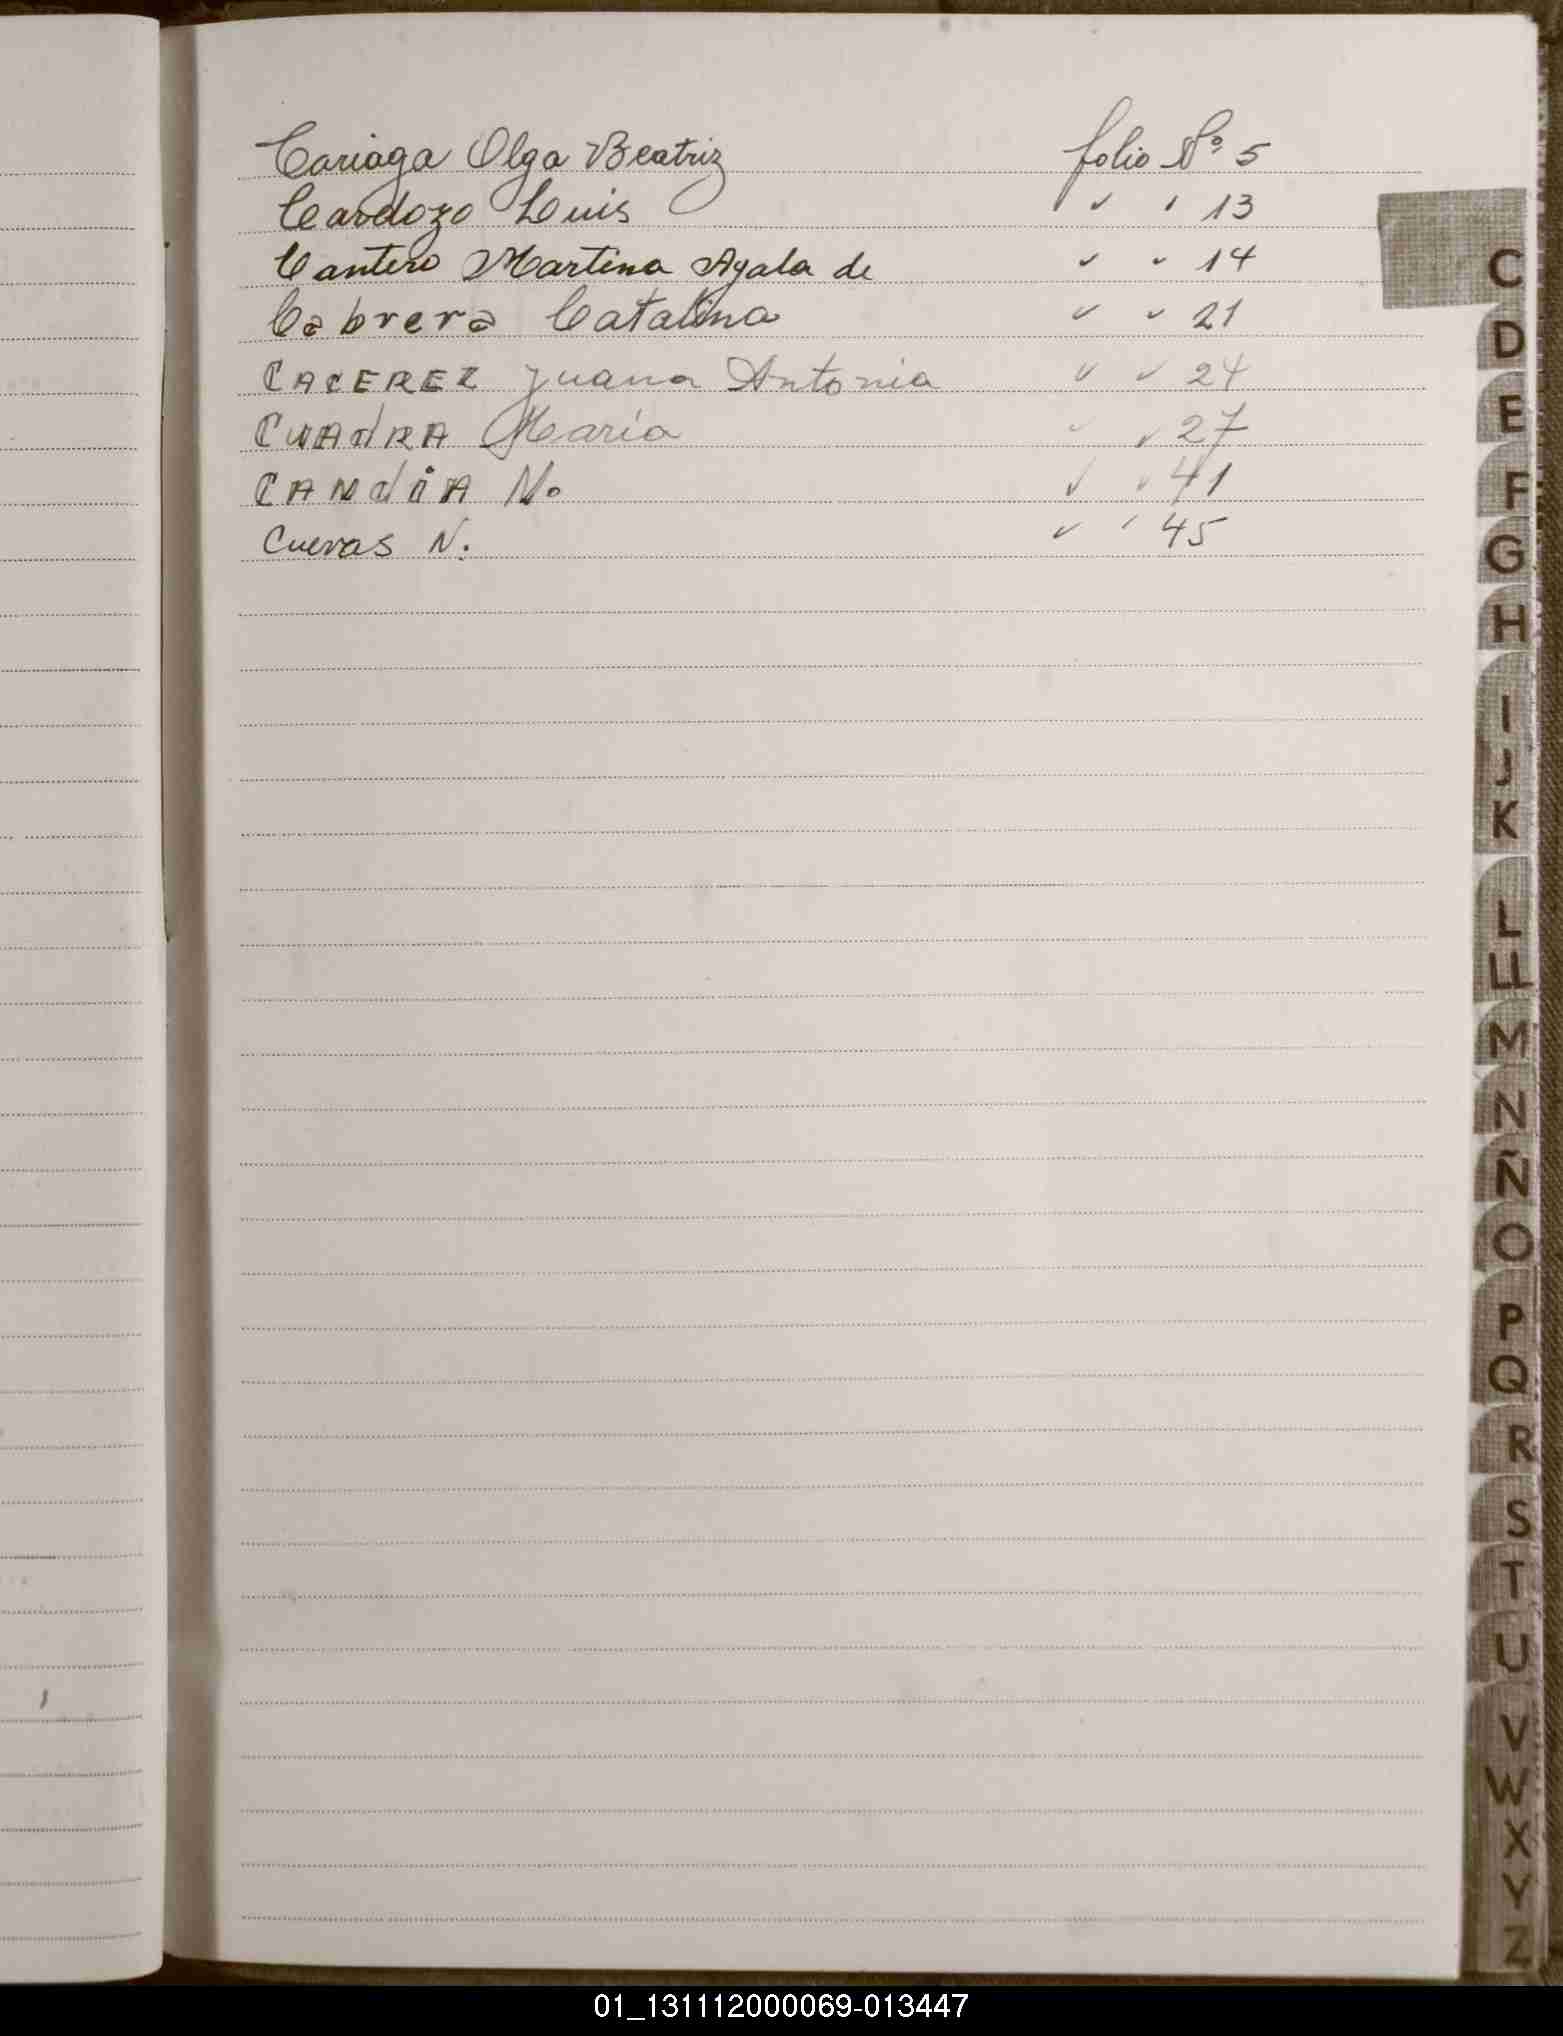 Cariaga Olga Beatriz folio Nº 5
Cardozo Luis " " 13
Cantero Martina Ayala de " " 14
Cabrera Catalina " " 21
CACEREZ Juana Antonia " " 24
CUAdRA María " " 27
CANdiA N. " " 41
Cuevas N. " " 45
C
D
E
F
G
H
I
J
K
L
LL
M
N
Ñ
O
P
Q
R
S
T
U
V
W
X
Y
Z
01_131112000069-013447